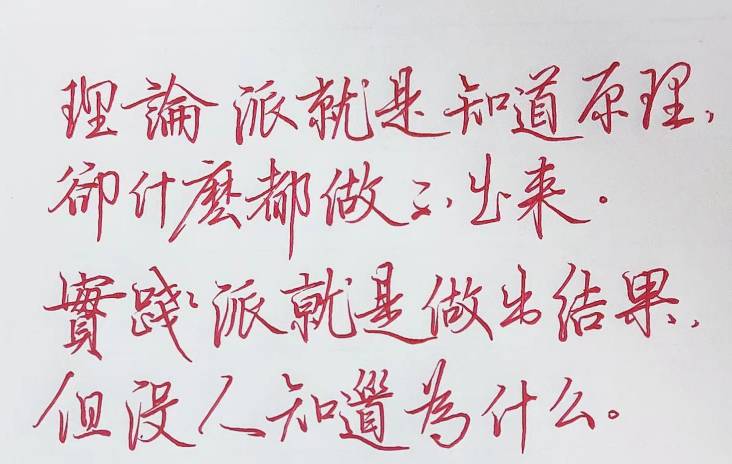 理論派就是知道原理,
卻什麼都做不出来.
實踐派就是做出结果,
但没人知道為什么。